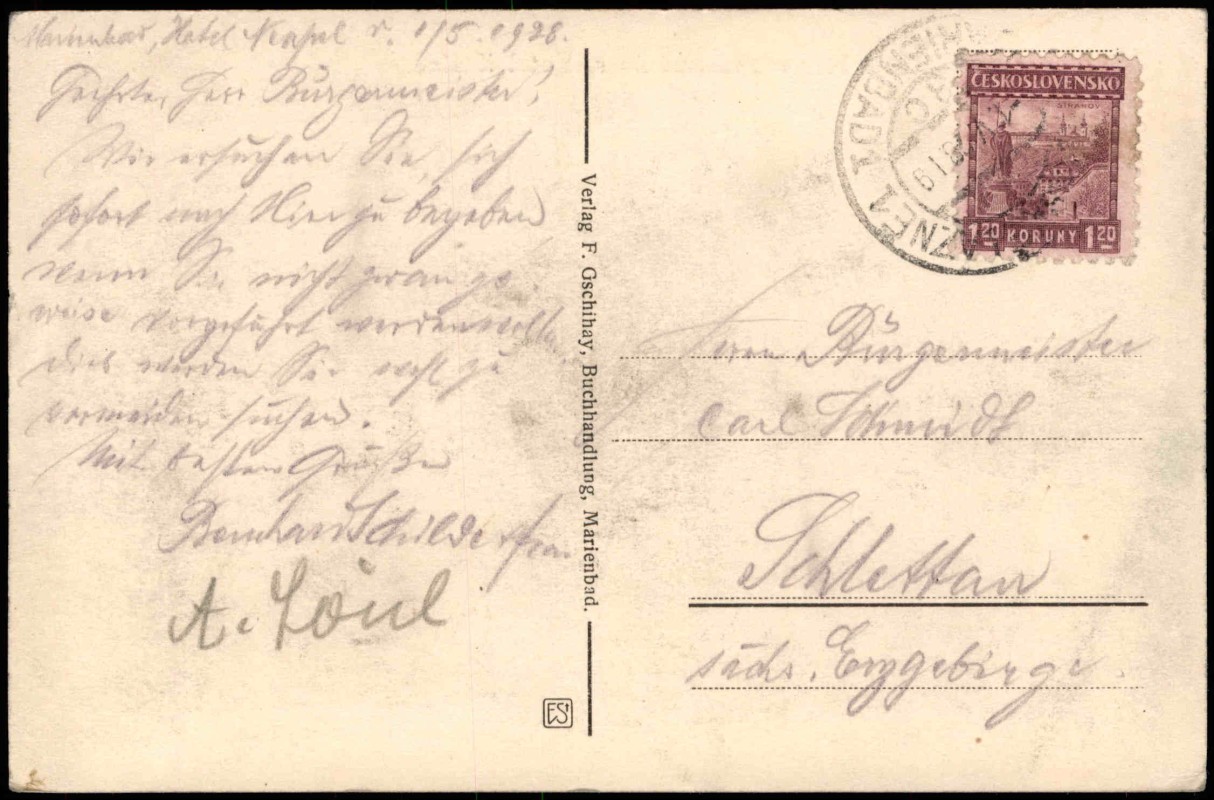 Marienbad, Hotel Neapel d. 1/5. 1928.
Geehrter Herr Bürgermeister!
Wir ersuchen Sie, sich
sofort nach Hier zu begeben
wenn Sie nicht zwangs
weise vorgeführt werden wollen
dies werden Sie wohl zu
vermeiden suchen.
Mit besten Grüßen
Bernhard Schilder
A.
Verlag F. Gschihay, Buchhandlung, Marienbad.
ES
ČESKOSLOVENSKO
STRAHOV
1 20 KORUNY 1 20
MARIENBAD 1
LÁZNĚ 1
Herrn Bürgermeister
Carl Schmidt
Schlettau
sächs. Erzgebirge.